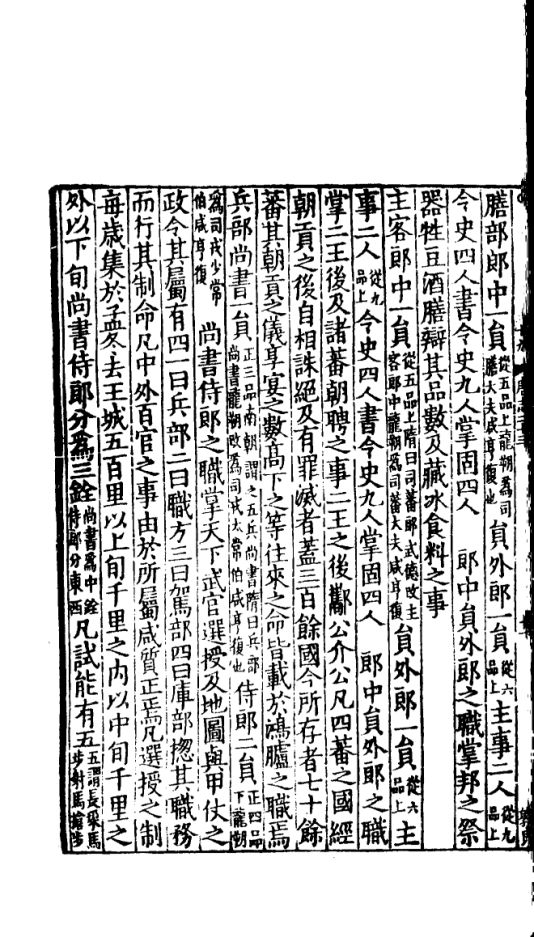 膳部郎中一員從五品上龍朔為司膳大夫咸亨復也員外郎一員從六品上主事二人從九品上
令史四人書令史九人掌固四人　郎中員外郎之職掌邦之祭
器牲豆酒膳辯其品數及藏冰食料之事
主客郎中一員從五品上隋曰司蕃郎武德改主客郎中龍朔為司蕃大夫咸亨復員外郎一員從六品上主
事二人從九品上令史四人書令史九人掌固四人　郎中員外郎之職
掌二王後及諸蕃朝聘之事二王之後酅公介公凡四蕃之國經
朝貢之後自相誅絕及有罪滅者蓋三百餘國今所存者七十餘
蕃其朝貢之儀享宴之數高下之等往來之命皆載於鴻臚之職焉
兵部尚書一員正三品南朝謂之五兵尚書隋曰兵部尚書龍朔改為司戎太常伯咸亨復也侍郎二員正四品下龍朔
為司戎少常伯咸亨復　尚書侍郎之職掌天下武官選授及地圖與甲仗之
政令其屬有四一曰兵部二曰職方三曰駕部四曰庫部揔其職務
而行其制命凡中外百官之事由於所屬咸質正焉凡選授之制
每歲集於孟冬去王城五百里以上旬千里之內以中旬千里之
外以下旬尚書侍郎分為三銓尚書為中銓侍郎分東西凡試能有五五謂長垛馬步射馬槍步